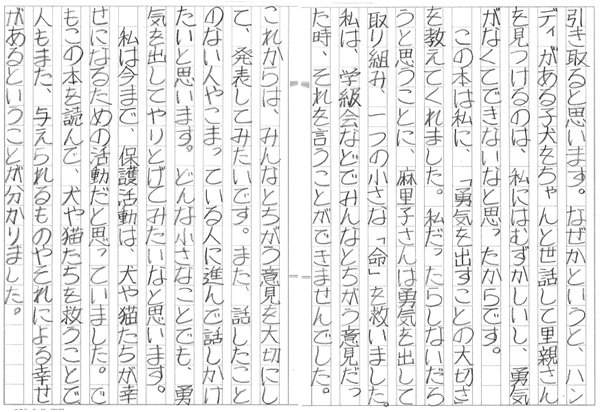 引き取ると思います。なぜかというと、ハン
ディがある子犬をちゃんと世話して里親さん
を見つけるのは、私にはむずかしいし、勇気
がなくてできないなと思ったからです。
この本は私に、「勇気を出すことの大切さ」
を教えてくれました。私だったらしないだろ
うと思うことに、麻里子さんは勇気を出して
取り組み、一つの小さな「命」を救いました。
私は、学級会などでみんなとちがう意見だっ
た時、それを言うことができませんでした。
これからは、みんなとちがう意見を大切にし
て、発表してみたいです。また、話したこと
のない人やこまっている人に進んで話しかけ
たいと思います。どんな小さなことでも、勇
気を出してやりとげてみたいなと思います。
私は今まで、保護活動は、犬や猫たちが幸
せになるための活動だと思っていました。で
もこの本を読んで、犬や猫たちを救うことで
人もまた、与えられるものやそれによる幸せ
があるということが分かりました。